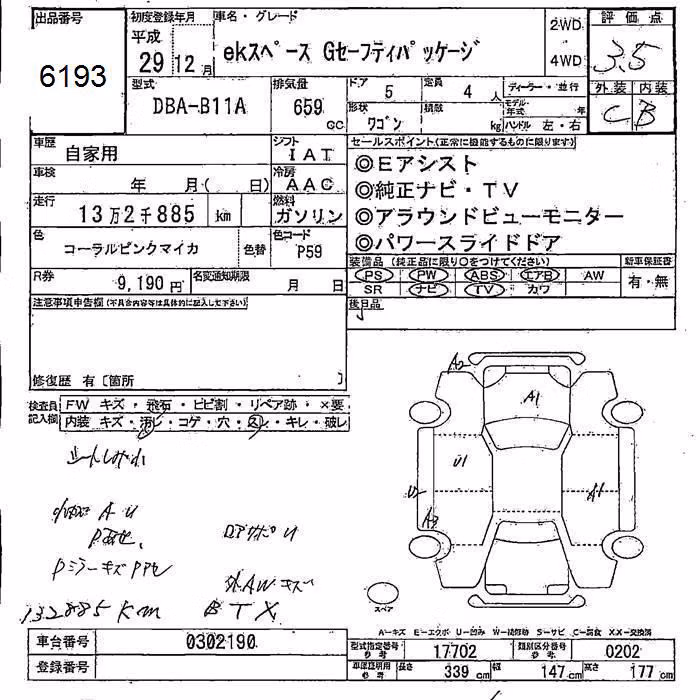 出品番号
6193
初度登録年月
平成
29 12月
車名・グレード
ekスペース Gセーフティパッケージ
2WD
4WD
評価点
3.5
外装 内装
C B
型式
DBA-B11A
排気量
659
CC
ドア
5
定員
4 人
形状
ワゴン
積載
kg
ディーラー・並行
モデル年式 年
ハンドル 左・右
車歴
自家用
シフト
IAT
車検
年 月( 日)
冷房
AAC
走行
13万2千885 km
燃料
ガソリン
色
コーラルピンクマイカ
色替
色コード
P59
R券
9,190円
名変通知期限
月 日
セールスポイント(正常に機能するものに限ります)
◎Eアシスト
◎純正ナビ・TV
◎アラウンドビューモニター
◎パワースライドドア
装備品(純正品に限り○をつけてください)
PS PW ABS エアB AW
SR ナビ TV カワ
新車保証書
有・無
後日品
注意事項申告欄(不具合内容等は具体的に記入して下さい)
修復歴 有〔箇所 〕
検査員記入欄
FW キズ・飛石・ヒビ割・リペア跡・×要
内装 キズ・汚レ・コゲ・穴・スレ・キレ・破レ
A U
Pミラーキズ
外AWキズ
132885 Km
B T X
A2
A1
U1
A1
スペア
A－キズ E－エクボ U－凹み W－補修跡 S－サビ C－腐食 XX－交換済
車台番号
0302190
登録番号
型式指定番号
参考
17702
類別区分番号
参考
0202
車庫証明用
参考
長さ 339 cm 幅 147 cm 高さ 177 cm